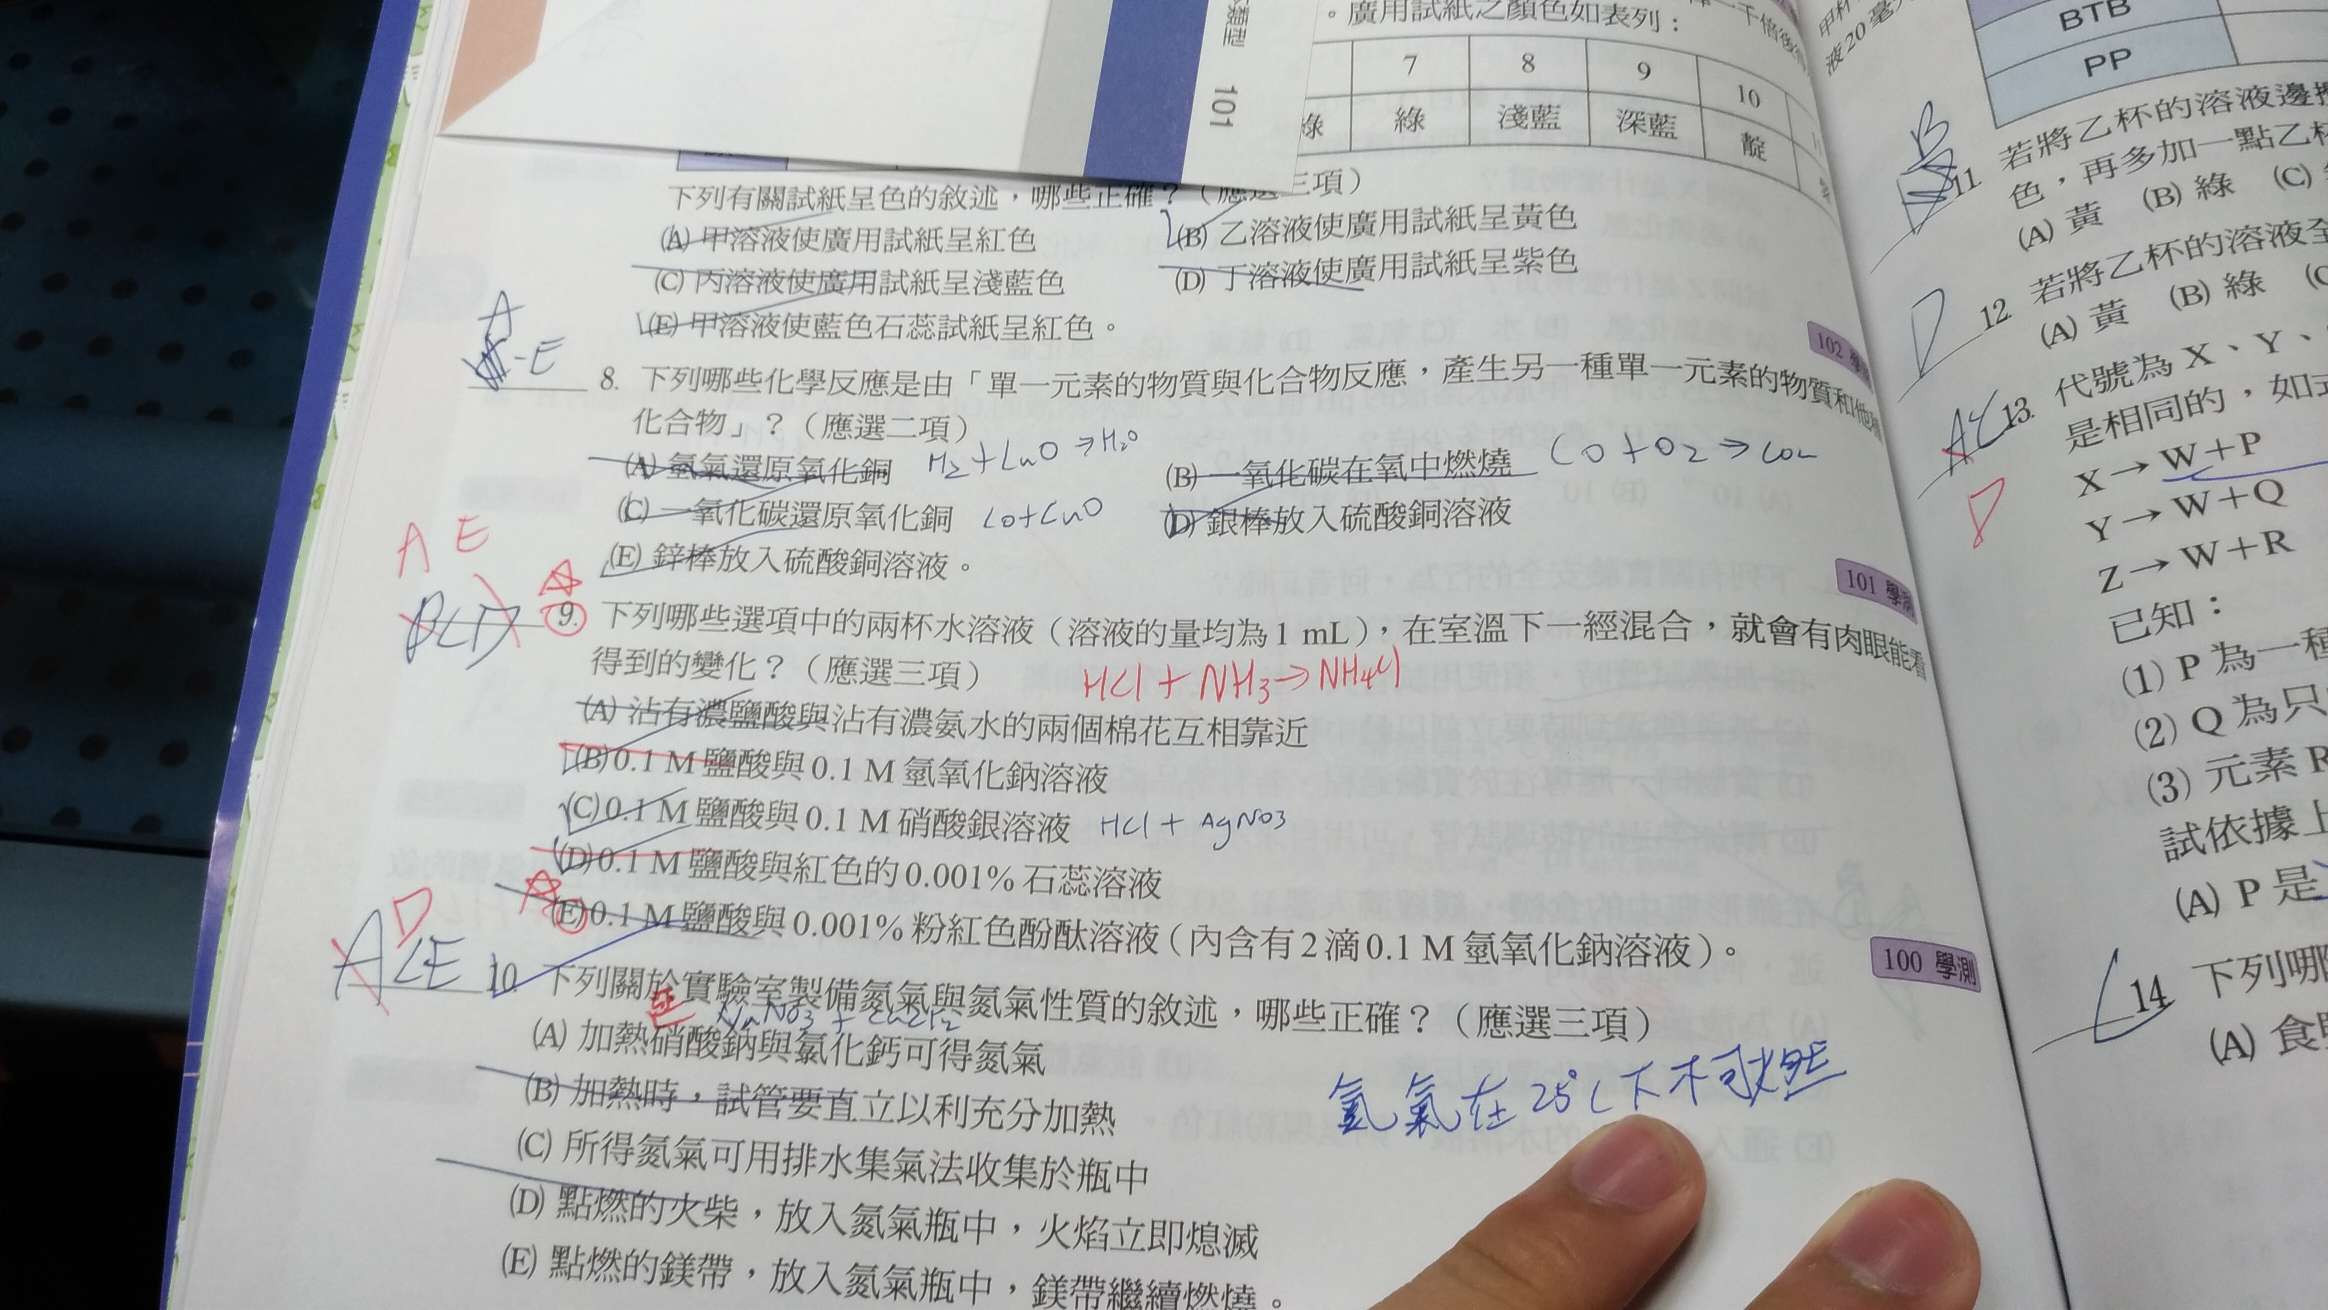 類型 101
。廣用試紙之顏色如表列：
7 8 9 10
綠 綠 淺藍 深藍 靛
下列有關試紙呈色的敘述，哪些正確？（應選三項）
(A) 甲溶液使廣用試紙呈紅色 (B) 乙溶液使廣用試紙呈黃色
(C) 丙溶液使廣用試紙呈淺藍色 (D) 丁溶液使廣用試紙呈紫色
(E) 甲溶液使藍色石蕊試紙呈紅色。
102 學
A
E
8. 下列哪些化學反應是由「單一元素的物質與化合物反應，產生另一種單一元素的物質和他種
化合物」？（應選二項）
(A) 氫氣還原氧化銅 H2+CuO→H2O (B) 一氧化碳在氧中燃燒 CO+O2→CO2
(C) 一氧化碳還原氧化銅 CO+CuO (D) 銀棒放入硫酸銅溶液
(E) 鋅棒放入硫酸銅溶液。
101 學測
A E
BCD
9. 下列哪些選項中的兩杯水溶液（溶液的量均為1 mL），在室溫下一經混合，就會有肉眼能看
得到的變化？（應選三項） HCl + NH3→NH4Cl
(A) 沾有濃鹽酸與沾有濃氨水的兩個棉花互相靠近
(B) 0.1 M 鹽酸與 0.1 M 氫氧化鈉溶液
(C) 0.1 M 鹽酸與 0.1 M 硝酸銀溶液 HCl + AgNO3
(D) 0.1 M 鹽酸與紅色的 0.001% 石蕊溶液
(E) 0.1 M 鹽酸與 0.001% 粉紅色酚酞溶液（內含有 2 滴 0.1 M 氫氧化鈉溶液）。
100 學測
D
ACE
10. 下列關於實驗室製備氮氣與氮氣性質的敘述，哪些正確？（應選三項）
NaNO3 + CaCl2
(A) 加熱硝酸鈉與氯化鈣可得氮氣
(B) 加熱時，試管要直立以利充分加熱
氫氣在25℃下不可燃
(C) 所得氮氣可用排水集氣法收集於瓶中
(D) 點燃的火柴，放入氮氣瓶中，火焰立即熄滅
(E) 點燃的鎂帶，放入氮氣瓶中，鎂帶繼續燃燒。
液20毫
BTB
PP
B
11 若將乙杯的溶液邊攪
色，再多加一點乙杯
(A) 黃 (B) 綠 (C)
D
12. 若將乙杯的溶液全
(A) 黃 (B) 綠
AC
D
13. 代號為 X、Y、
是相同的，如式
X→W+P
Y→W+Q
Z→W+R
已知：
(1) P 為一種
(2) Q 為只
(3) 元素 R
試依據上
(A) P 是
C
14. 下列哪
(A) 食